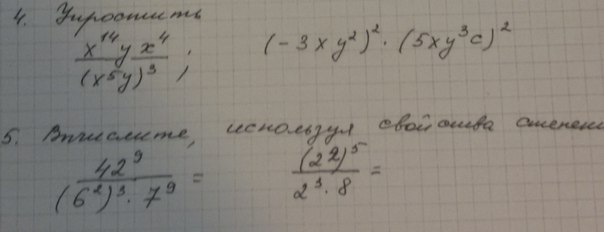 4. Упростить
x¹⁴y x⁴ / (x5y)³ ; (-3xy²)² · (5xy³c)²
5. Вычислите, используя свойства степени
42⁹ / (6²)³ · 7⁹ = (22)⁵ / 2³ · 8 =